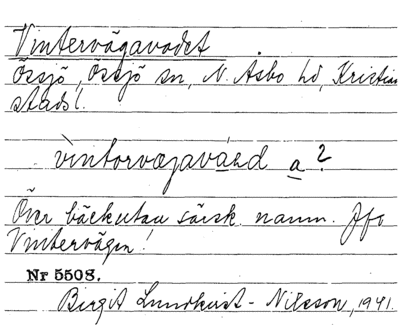 Vintervägavadet
Össjö, Össjö sn, N. Åsbo hd, Kristian
stads l.
vìntorvægavàed a?
Över bäck utan särsk. namn. Jfr
Vintervägen!
Nr 5508.
Birgit Lundkvist-Nilsson, 1941.